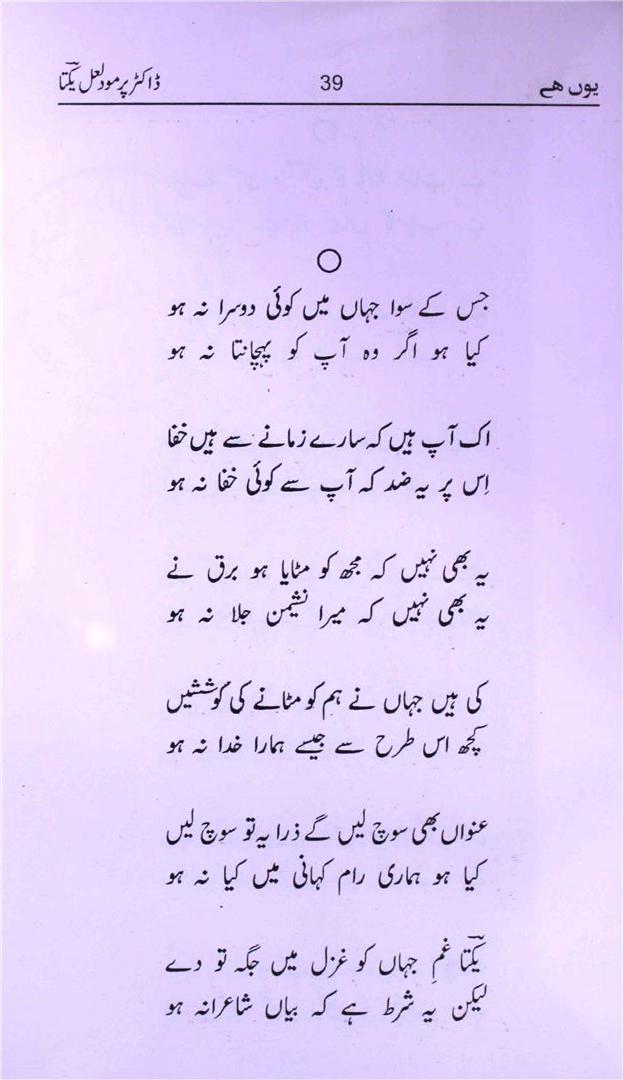 یوں ھے 39 ڈاکٹر پرمود لعل یکتاؔ
جس کے سوا جہاں میں کوئی دوسرا نہ ہو
کیا ہو اگر وہ آپ کو پہچانتا نہ ہو
اک آپ ہیں کہ سارے زمانے سے ہیں خفا
اِس پر یہ ضد کہ آپ سے کوئی خفا نہ ہو
یہ بھی نہیں کہ مجھ کو مٹایا ہو برق نے
یہ بھی نہیں کہ میرا نشیمن جلا نہ ہو
کی ہیں جہاں نے ہم کو مٹانے کی کوششیں
کچھ اس طرح سے جیسے ہمارا خدا نہ ہو
عنواں بھی سوچ لیں گے ذرا یہ تو سوچ لیں
کیا ہو ہماری رام کہانی میں کیا نہ ہو
یکتاؔ غمِ جہاں کو غزل میں جگہ تو دے
لیکن یہ شرط ہے کہ بیاں شاعرانہ ہو